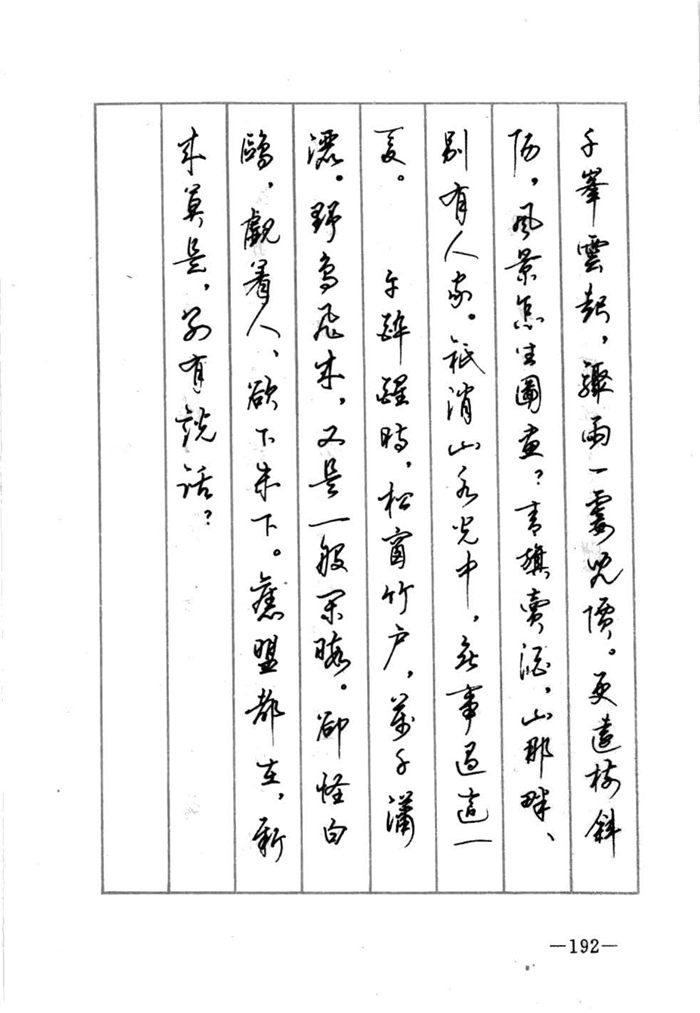 千峯雲起，驟雨一霎兒價。更遠樹斜
陽，風景怎生圖畫？青旗賣酒，山那畔、
別有人家。祇消山水光中，無事過這一
夏。　　午醉醒時，松窗竹户，萬千瀟
灑。野鳥飛來，又是一般閑暇。卻怪白
鷗，觑着人、欲下未下。舊盟都在，新
來莫是，别有説话？
—192—